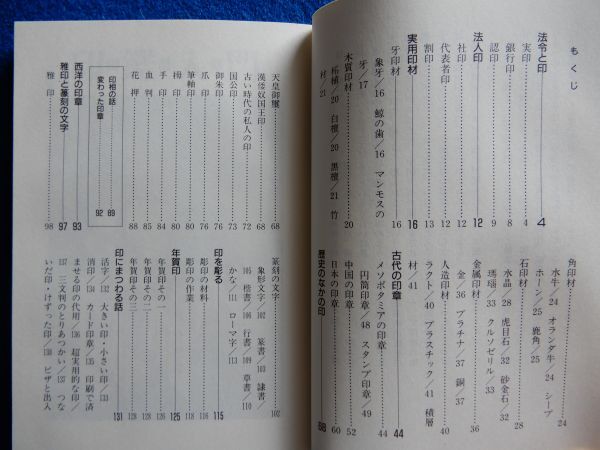 もくじ
法令と印 4
実印 4
銀行印 8
認印 9
法人印 12
社印 12
代表者印 12
割印 13
実用印材 16
牙印材 16
象牙/16 鯨の歯/16 マンモスの
牙/17
木質印材 20
柘植/20 白檀/20 黒檀/21 竹
材/21
角印材 24
水牛/24 オランダ牛/24 シープ
ホーン/25 鹿角/25
石印材 28
水晶/28 虎目石/32 砂金石/32
瑪瑙/33 クルソゼリル/33
金属印材 36
金/36 プラチナ/37 銅/37
人造印材 40
ラクト/40 プラスチック/41 積層
材/41
古代の印章 44
メソポタミアの印章 44
円筒印章/48 スタンプ印章/49
中国の印章 52
日本の印章 60
歴史のなかの印 68
天皇御璽 68
漢倭奴国王印 68
古い時代の私人の印 72
国公印 73
御朱印 76
筆軸印 76
爪印 80
拇印 80
手印 84
血判 85
花押 88
印相の話 89
変わった印章 92
西洋の印章 93
雅印と篆刻の文字 97
雅印 98
篆刻の文字 102
象形文字/102 篆書/103 隷書/
105 楷書/106 行書/109 草書/110
かな/111 ローマ字/113
印を彫る 115
彫印の材料 116
彫印の作業 118
年賀印 125
年賀印その一 126
年賀印その二 128
年賀印その三 128
印にまつわる話 131
活字/132 大きい印・小さい印/133
消印/134 カード印章/135 印刷で済
ませる印の代用/136 超実用的な印/
137 三文判のとりあつかい/137 つな
いだ印・けずった印/138 ビザと出入